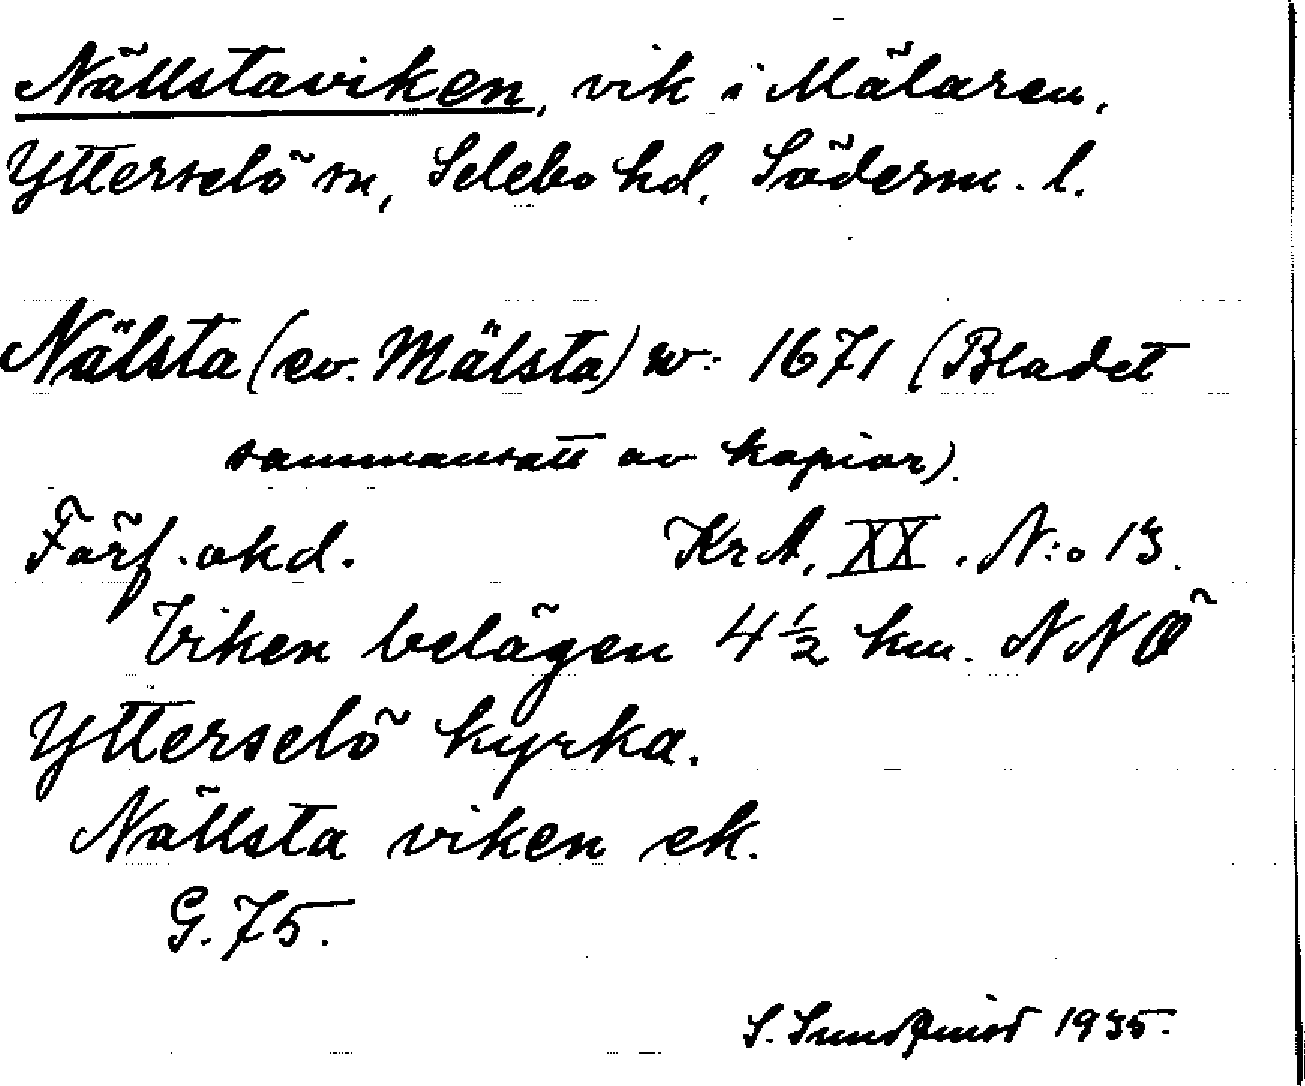 Nällstaviken, vik i Mälaren,
Ytterselö sn, Selebo hd, Söderm. l.
Nälsta (ev. Mälsta) w: 1671 (Bladet
sammansatt av kopior).
Förf. okd. KrA, XX. N:o 13.
Viken belägen 4 1/2 km. NNÖ
Ytterselö kyrka.
Nällsta viken ek.
G. 75.
S. Sundquist 1935.